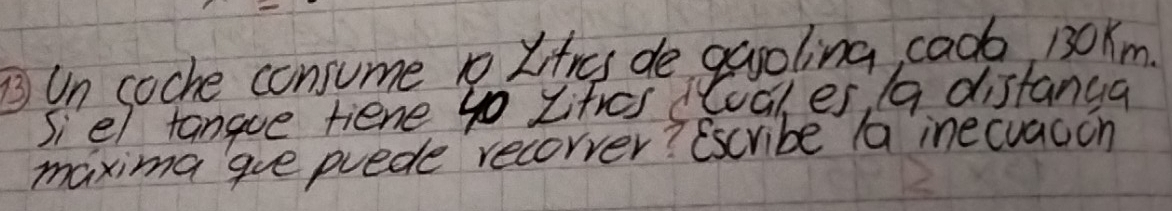 13 Un coche consume 10 Litros de gasolina, cada 130 Km.
Si el tanque tiene 40 Litros ¿Cuál es, la distancia
máxima que puede recorrer? Escribe la inecuación